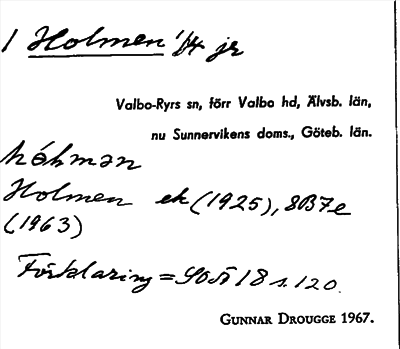 1 Holmen 1/4 jr
Valbo-Ryrs sn, förr Valbo hd, Älvsb. län,
nu Sunnervikens doms., Göteb. län.
hóhman
Holmen ek (1925), 8B7e
(1963)
Förklaring = SOÄ 18 s. 120.
GUNNAR DROUGGE 1967.